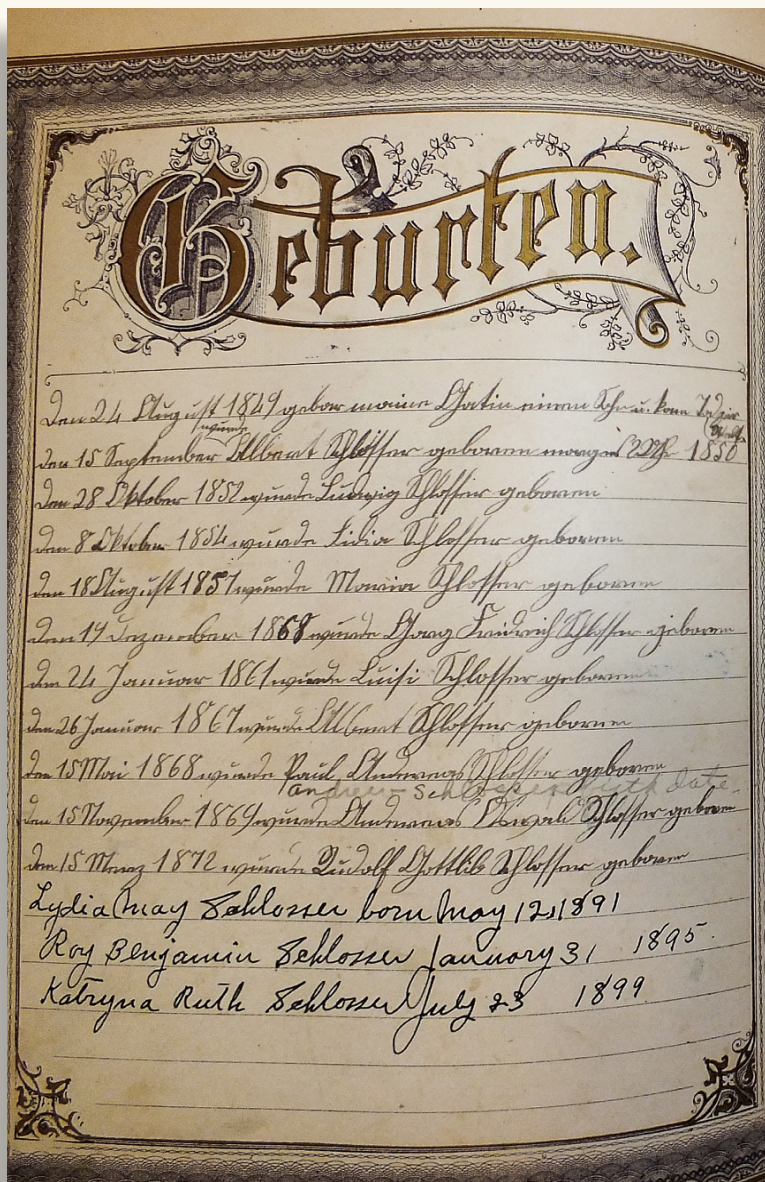 Geburten.
Den 24 August 1849 gebar meine Gatin einen Sohn u. kam Tod zir
wurde (Welt
den 15 September Albert Schlosser geboren morgens Uhr 1850
Den 28 Oktober 1852 wurde Ludwig Schlosser geboren
den 8 Oktober 1854 wurde Lidia Schlosser geboren
den 18 August 1857 wurde Maria Schlosser geboren
Den 19 Dezember 1868 wurde Georg Freidrich Schlosser geboren
den 24 Januar 1861 wurde Luisi Schlosser geboren
den 26 Januar 1867 wurde Albert Schlosser geboren
den 15 Mai 1868 wurde Paul Andereas Schlosser geboren
andrew - Schlosser birth date
den 15 November 1869 wurde Andereas Oswald Schlosser geboren
den 15 Merz 1872 wurde Rudolf Gottlib Schlosser geboren
Lydia May Schlosser born May 12, 1891
Roy Benjamin Schlosser January 31 1895.
Katryna Ruth Schlosser July 23 1899